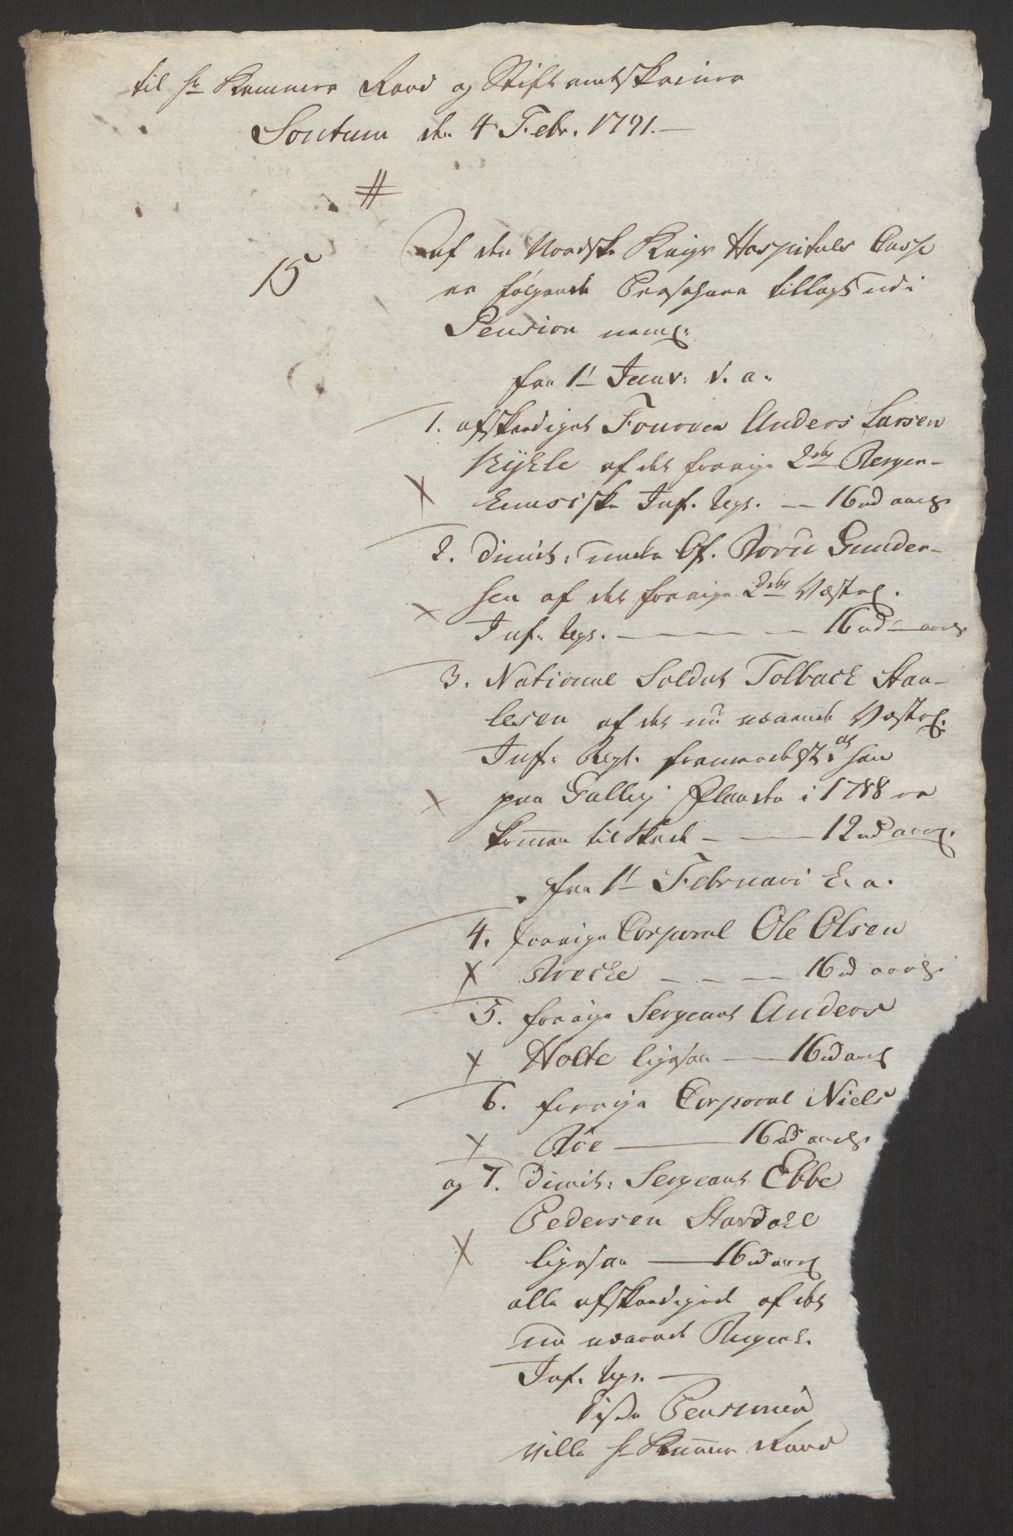 til Hr Kammer Raad og Stiftamtskriver
Sontum den 4 Febr. 1791.
#
15
af den Norske Krigs Hospitals Casse
er følgende Personer tillagt udi
Pension neml:
fra 1t Janv: d. a.
1. afskediget Fourrer Anders Larsen
af det forrige 2det Bergen-
husiske Inf. Reg. — 16 rd aarl.
2. Dimit: under Of. Gunder-
sen af det forrige 2det Vesterl.
Inf. Reg. — 16 rd aarl.
3. National Soldat Tolback Haa-
lesen af det nu værende Vesterl.
Inf. Regt. formedelst at han
paa Galley i 1788 er
kommen til Skade — 12 rd aarl.
fra 1t Februari h. a.
4. forrige Corporal Ole Olsen
Brecke — 16 rd aarl.
5. forrige Sergeant Anders
Holte ligesaa — 16 rd aarl
6. forrige Corporal Niels
Röe — 16 rd aarl.
og 7. Dimit: Sergeant Ebbe
Pedersen
ligesaa — 16 rd aarl
alle afskediget af det
nu værende Bergenh.
Inf. Reg. —
Disse Pensioner
ville Hr Kammer Raad